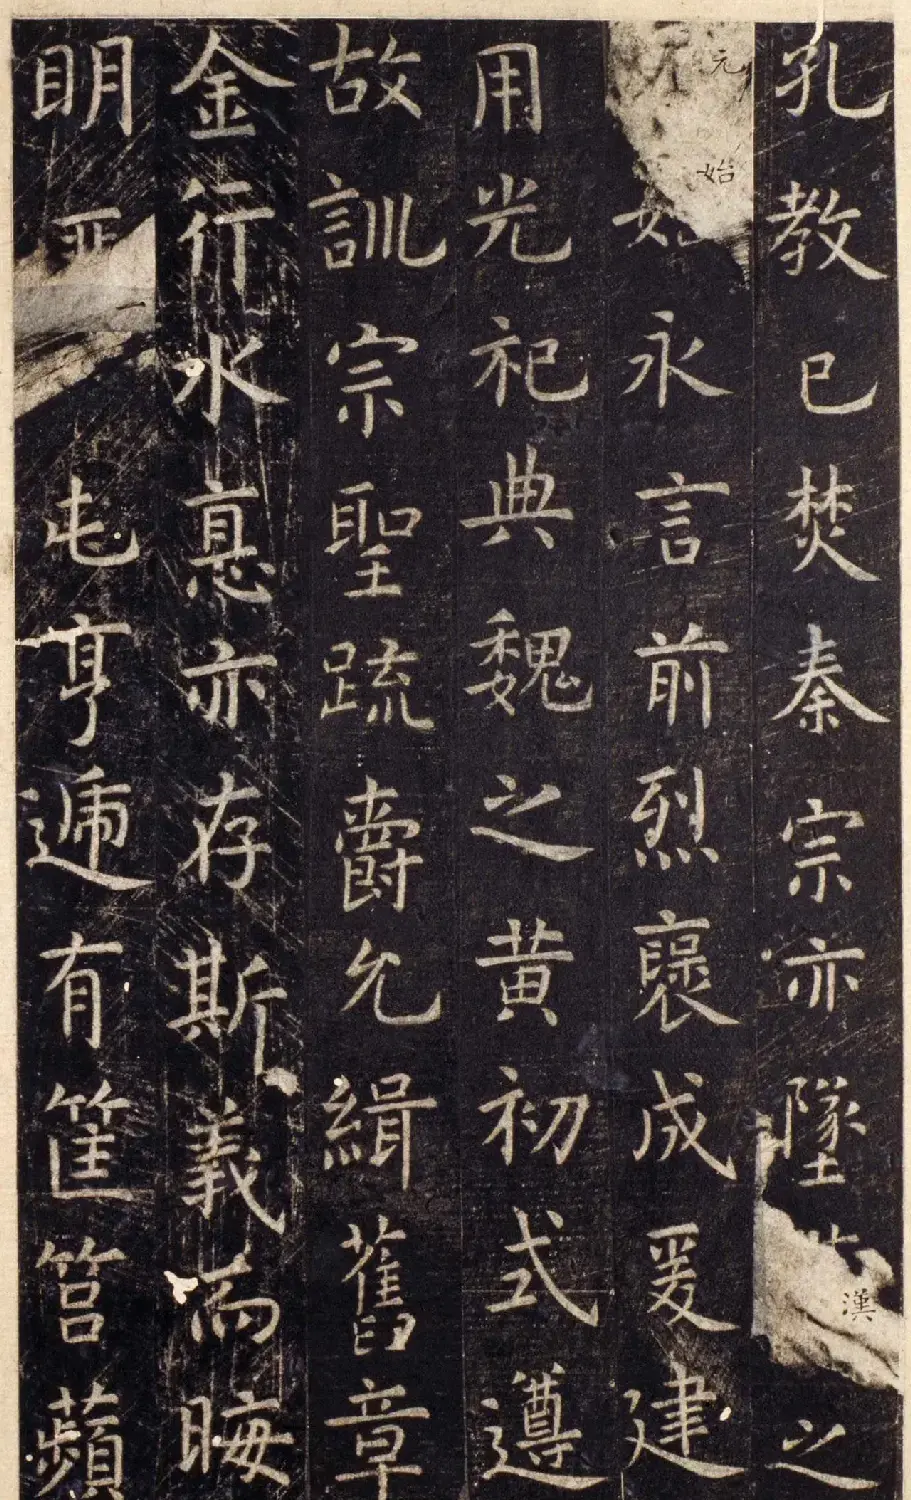 孔教已焚秦宗亦墜漢之
元始永言前烈襃成爰建
用光祀典魏之黃初式遵
故訓宗聖疏爵允緝舊章
金行水悳亦存斯義而晦
明一屯亨遞有筐筥蘋